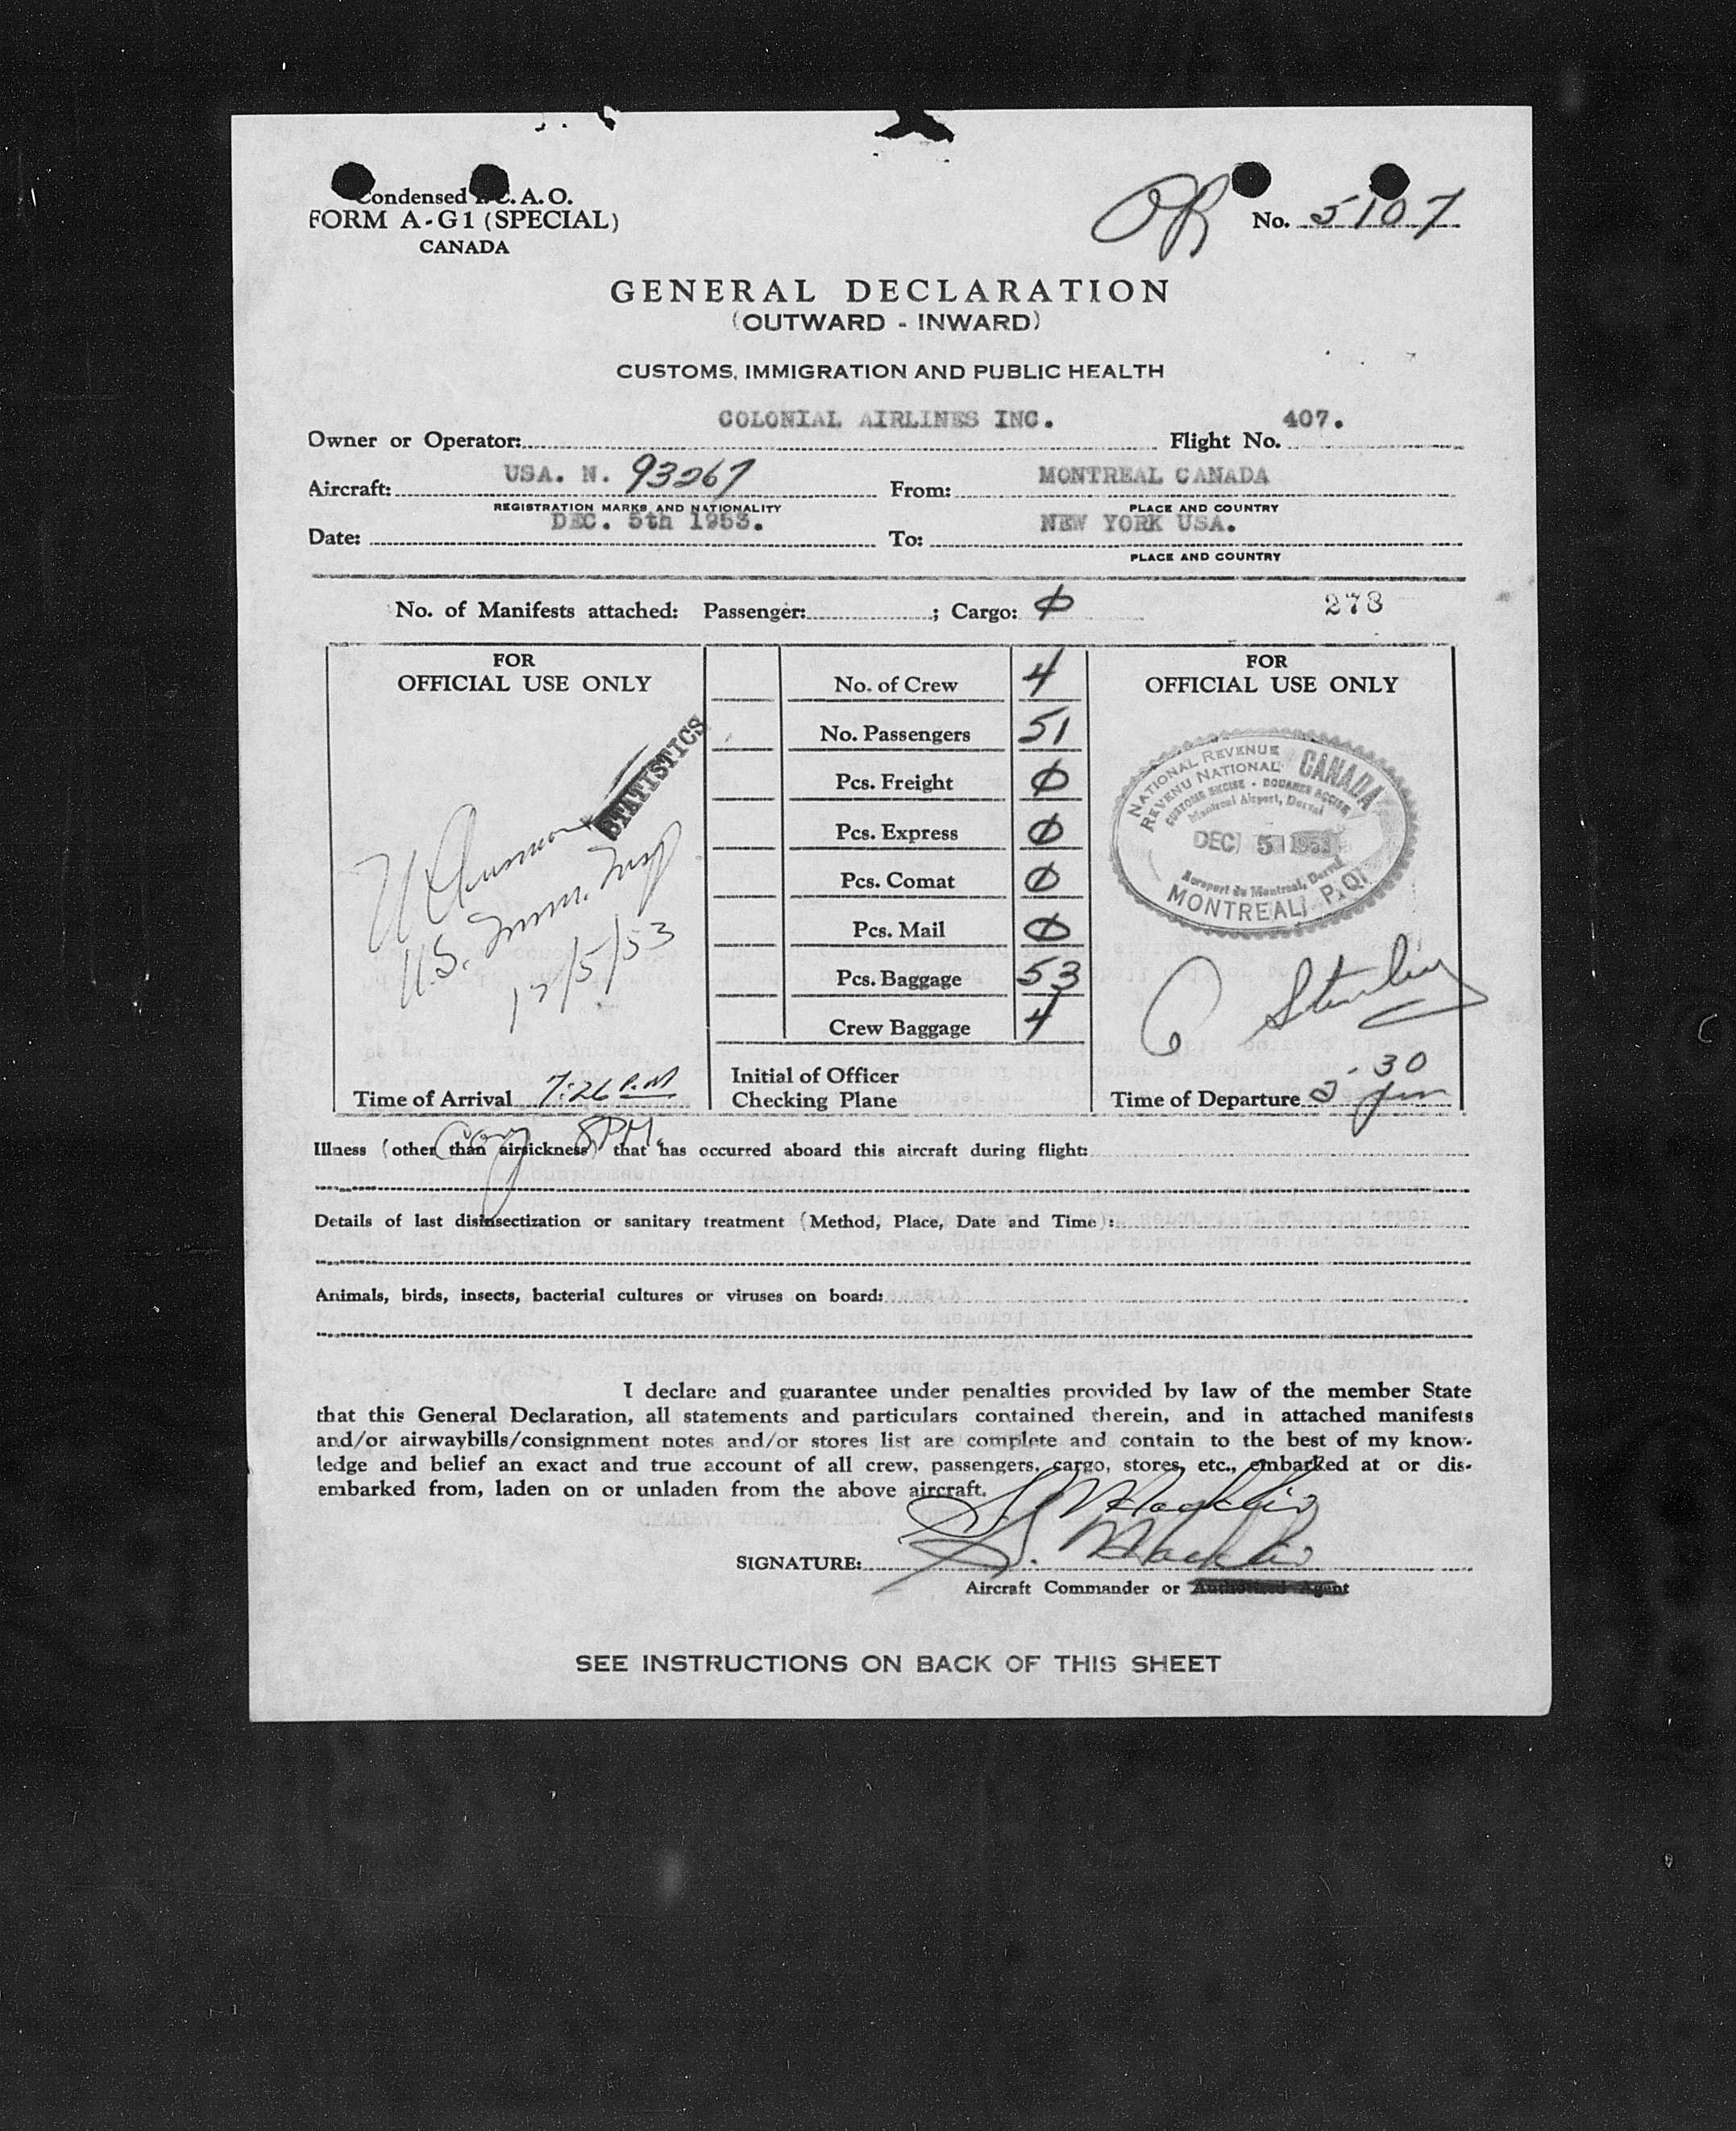 Condensed I. C. A. O.
FORM A-G1 (SPECIAL)
CANADA
No. 5107
GENERAL DECLARATION
(OUTWARD - INWARD)
CUSTOMS, IMMIGRATION AND PUBLIC HEALTH
Owner or Operator: COLONIAL AIRLINES INC. Flight No. 407.
Aircraft: USA. N. 93267 From: MONTREAL CANADA
REGISTRATION MARKS AND NATIONALITY PLACE AND COUNTRY
Date: DEC. 5th 1953. To: NEW YORK USA.
PLACE AND COUNTRY
No. of Manifests attached: Passenger: ; Cargo: ϕ 278
FOR
OFFICIAL USE ONLY
STATISTICS
U.S. Imm. Insp
12/5/53
Time of Arrival 7:26 P.M
No. of Crew 4
No. Passengers 51
Pcs. Freight ϕ
Pcs. Express ϕ
Pcs. Comat ϕ
Pcs. Mail ϕ
Pcs. Baggage 53
Crew Baggage 4
Initial of Officer
Checking Plane
FOR
OFFICIAL USE ONLY
NATIONAL REVENUE CANADA
REVENU NATIONAL
CUSTOMS EXCISE - DOUANES ACCISE
Montreal Airport, Dorval
DEC 5 1953
Aeroport de Montreal, Dorval
MONTREAL, P.Q.
Time of Departure
8PM.
Illness (other than airsickness) that has occurred aboard this aircraft during flight:
Details of last disinsectization or sanitary treatment (Method, Place, Date and Time):
Animals, birds, insects, bacterial cultures or viruses on board:
I declare and guarantee under penalties provided by law of the member State
that this General Declaration, all statements and particulars contained therein, and in attached manifests
and/or airwaybills/consignment notes and/or stores list are complete and contain to the best of my know-
ledge and belief an exact and true account of all crew, passengers, cargo, stores, etc., embarked at or dis-
embarked from, laden on or unladen from the above aircraft.
SIGNATURE:
Aircraft Commander or Authorized Agent
SEE INSTRUCTIONS ON BACK OF THIS SHEET